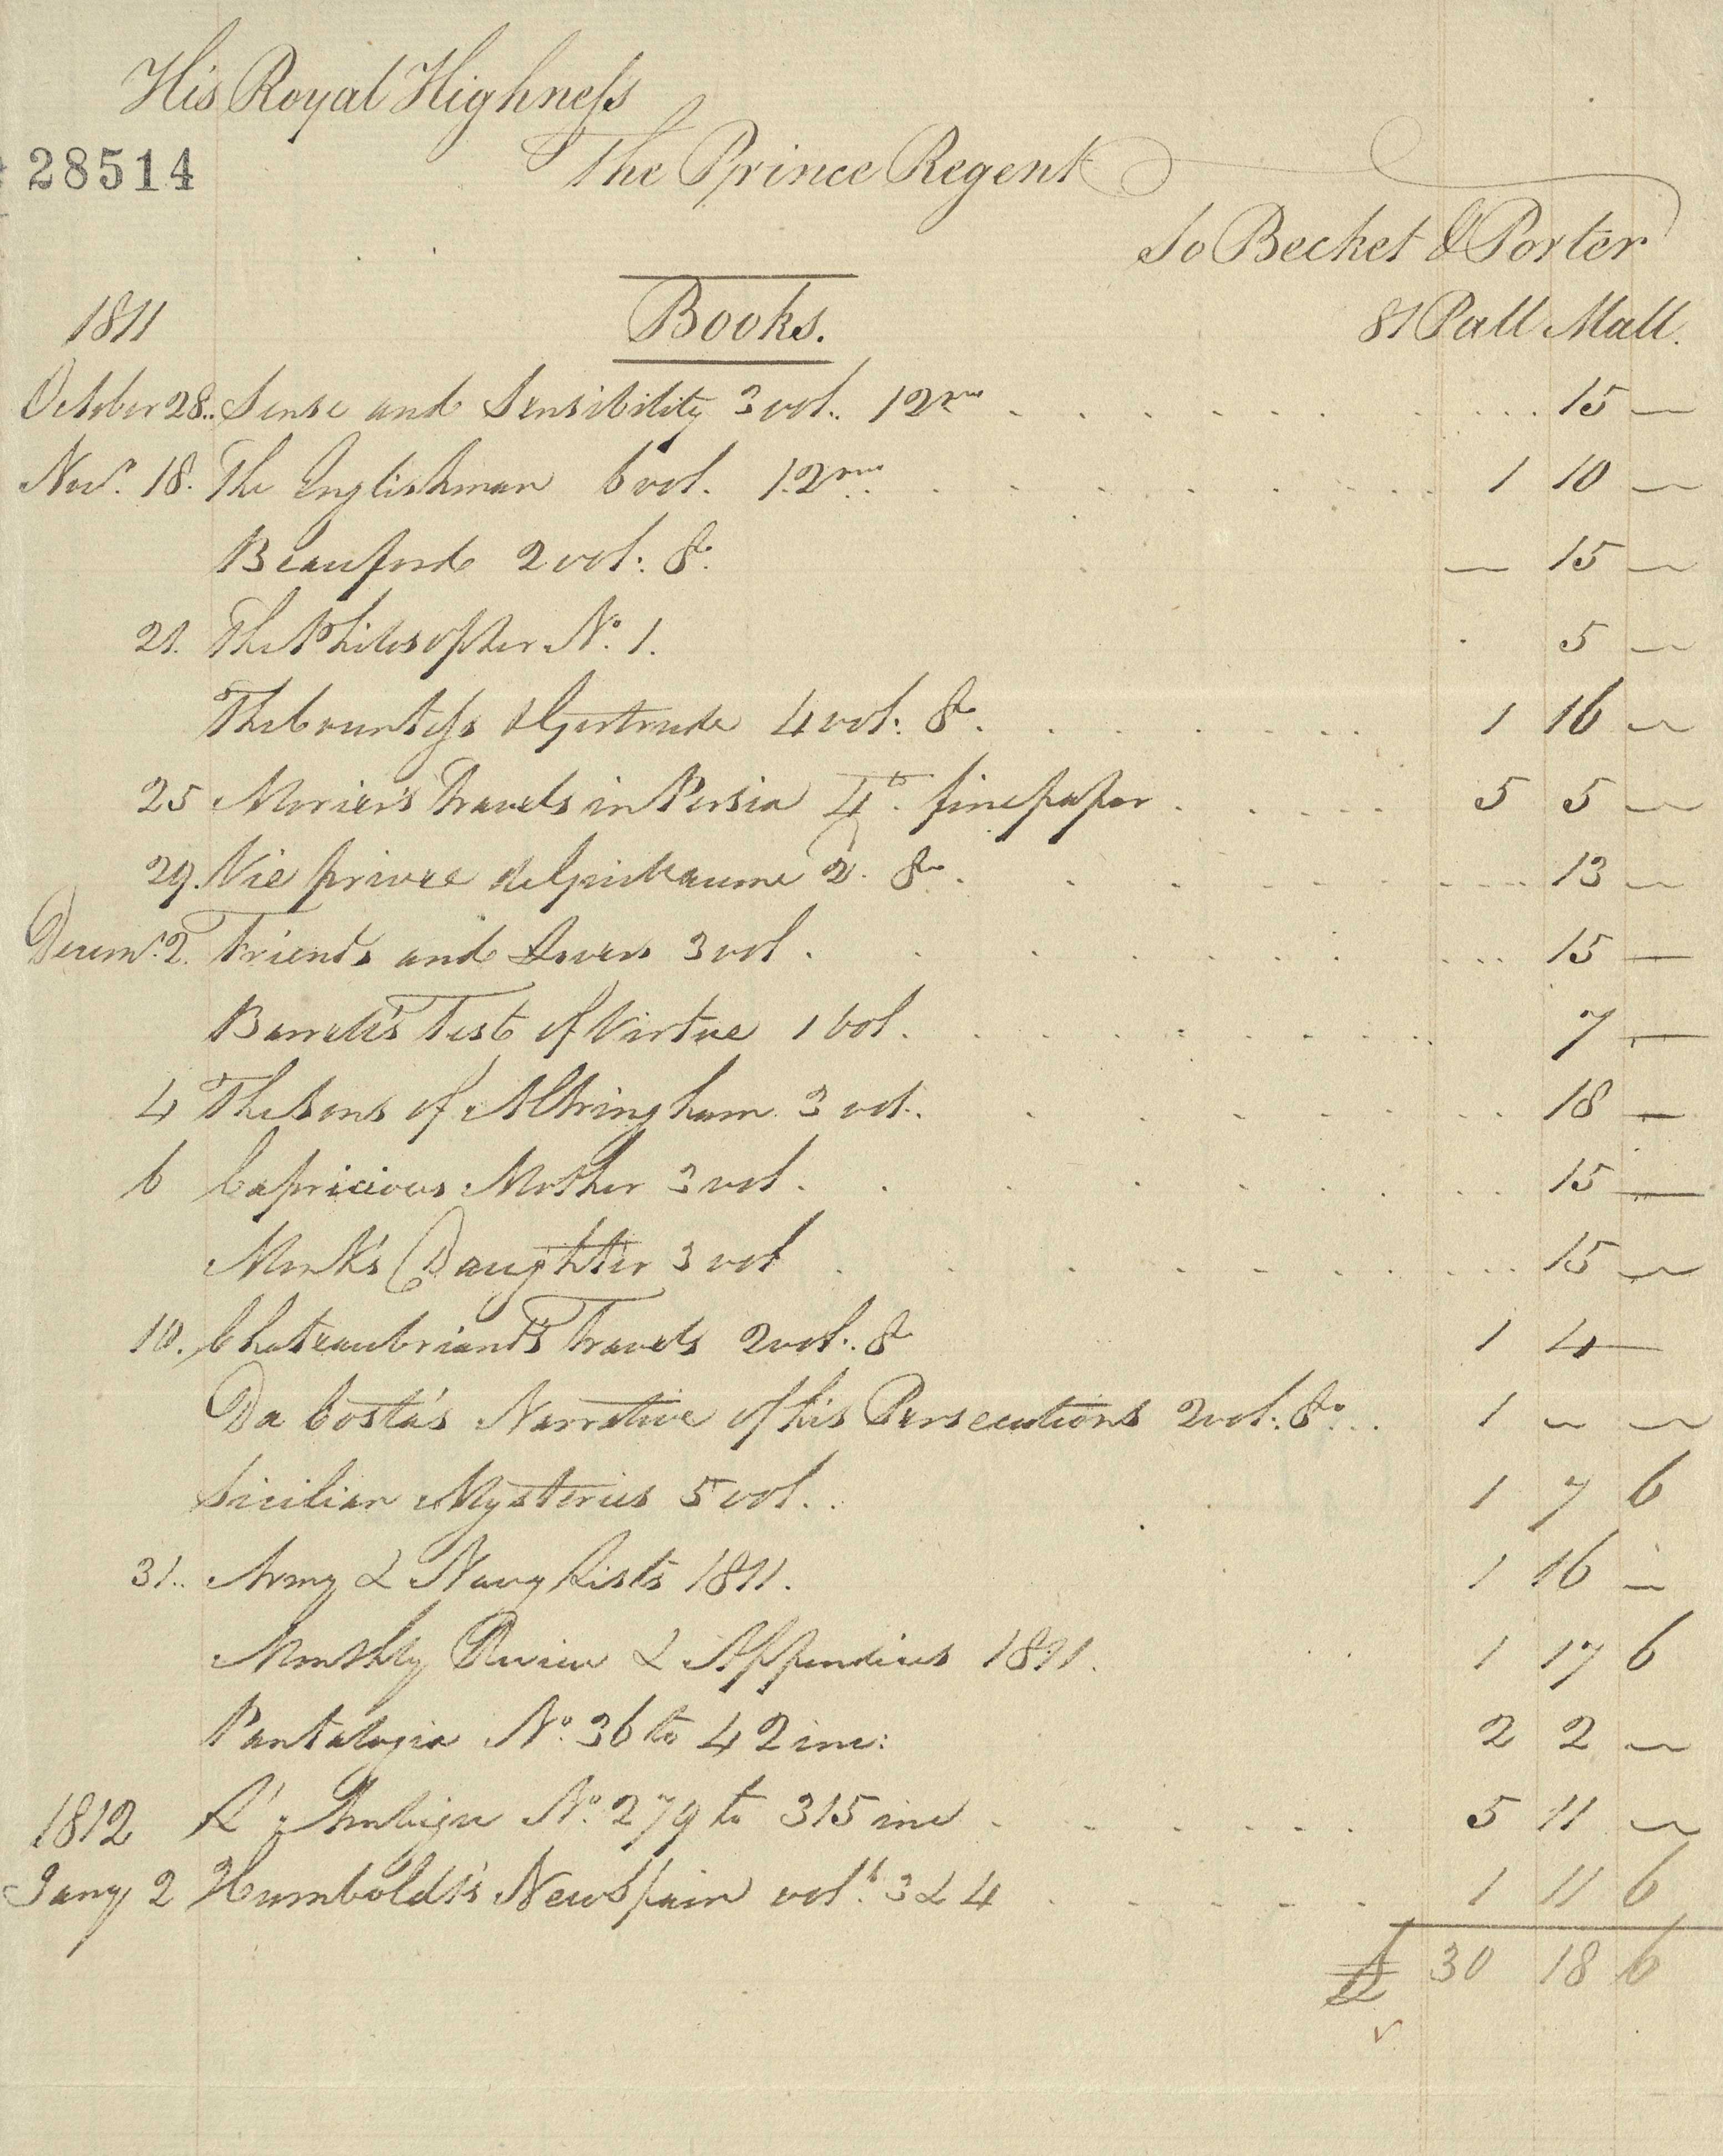 His Royal Highness
28514
The Prince Regent
To Becket & Porter
81 Pall Mall.
1811 Books.
October 28.. Sense and Sensibility 3 vol.. 12mo 15 —
Novr. 18. The Englishman 6 vol. 12mo. 1 10 —
Beauford 2 vol: 8o. — 15 —
21. The Philosopher No. 1. 5 —
The Countess & Gertrude 4 vol: 8o. 1 16 —
25 Morier's Travels in Persia 4to. fine paper 5 5 —
29. Vie privée de 2. 8vo. 13 —
Decemr. 2. Friends and Lovers 3 vol. 15 —
Barrett's Test of Virtue 1 vol. 7 —
4 The Sons of Altringham 3 vol. 18 —
6 Capricious Mother 3 vol. 15 —
Monk's Daughter 3 vol 15 —
10. Chateaubriand's Travels 2 vol.. 8o 1 4 —
Da Costa's Narrative of his Persecutions 2 vol: 8o. 1 — —
Sicilian Mysteries 5 vol.. 1 7 6
31.. Army & Navy Lists 1811. 1 16 —
Monthly Review & Appendices 1811. 1 17 6
Pantalogia No. 36 to 42 inc: 2 2 —
1812 L'Ambigu No. 279 to 315 inc 5 11 —
Jany 2 Humboldt's New Spain vols. 3 & 4 1 11 6
£ 30 18 6